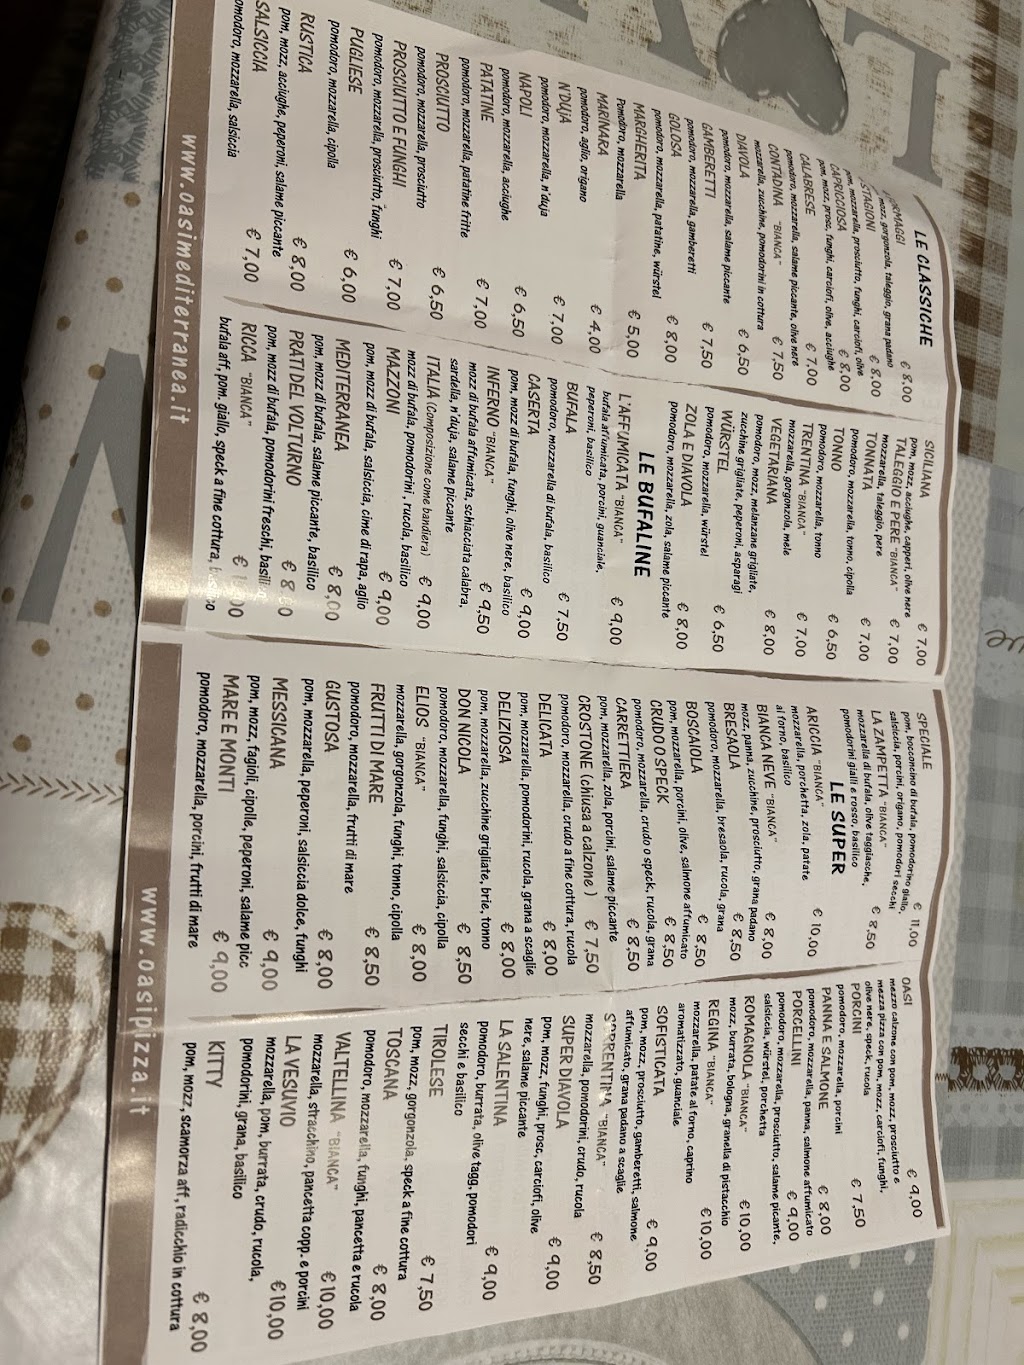 LE CLASSICHE
€ 8,00
mozz, gorgonzola, taleggio, grana padano
€ 8,00
pom, mozzarella, prosciutto, funghi, carciofi, olive
CAPRICCIOSA € 8,00
pom, mozz, prosc, funghi, carciofi, olive, acciughe
CALABRESE € 7,00
pomodoro, mozzarella, salame piccante, olive nere
CONTADINA "BIANCA" € 7,50
mozzarella, zucchine, pomodorini in cottura
DIAVOLA € 6,50
pomodoro, mozzarella, salame piccante
GAMBERETTI € 7,50
pomodoro, mozzarella, gamberetti
GOLOSA € 8,00
pomodoro, mozzarella, patatine, würstel
MARGHERITA € 5,00
Pomodoro, mozzarella
MARINARA € 4,00
pomodoro, aglio, origano
N'DUJA € 7,00
pomodoro, mozzarella, n'duja
NAPOLI € 6,50
pomodoro, mozzarella, acciughe
PATATINE € 7,00
pomodoro, mozzarella, patatine fritte
PROSCIUTTO € 6,50
pomodoro, mozzarella, prosciutto
PROSCIUTTO E FUNGHI € 7,00
pomodoro, mozzarella, prosciutto, funghi
PUGLIESE € 6,00
pomodoro, mozzarella, cipolla
RUSTICA € 8,00
pom, mozz, acciughe, peperoni, salame piccante
SALSICCIA € 7,00
pomodoro, mozzarella, salsiccia
SICILIANA € 7,00
pom, mozz, acciughe, capperi, olive nere
TALEGGIO E PERE "BIANCA" € 7,00
mozzarella, taleggio, pere
TONNATA € 7,00
pomodoro, mozzarella, tonno, cipolla
TONNO € 6,50
pomodoro, mozzarella, tonno
TRENTINA "BIANCA" € 7,00
mozzarella, gorgonzola, mele
VEGETARIANA € 8,00
pomodoro, mozz, melanzane grigliate,
zucchine grigliate, peperoni, asparagi
WÜRSTEL € 6,50
pomodoro, mozzarella, würstel
ZOLA E DIAVOLA € 8,00
pomodoro, mozzarella, zola, salame piccante
LE BUFALINE
L'AFFUMICATA "BIANCA" € 9,00
bufala affumicata, porcini, guanciale,
peperoni, basilico
BUFALA € 7,50
pomodoro, mozzarella di bufala, basilico
CASERTA € 9,00
pom, mozz di bufala, funghi, olive nere, basilico
INFERNO "BIANCA" € 9,50
mozz di bufala affumicata, schiacciata calabra,
sardella, n'duja, salame piccante
ITALIA (Composizione come bandiera) € 9,00
mozz di bufala, pomodorini, rucola, basilico
MAZZONI € 9,00
pom, mozz di bufala, salsiccia, cime di rapa, aglio
MEDITERRANEA € 8,00
pom, mozz di bufala, salame piccante, basilico
PRATI DEL VOLTURNO €
pom, mozz di bufala, pomodorini freschi,
RICCA "BIANCA" €
bufala aff, pom. giallo, speck a fine cottura,
www.oasimediterranea.it
SPECIALE € 11,00
pom, bocconcino di bufala, pomodorino giallo,
salsiccia, porcini, origano, pomodori secchi
LA ZAMPETTA "BIANCA" € 8,50
mozzarella di bufala, olive taggiasche,
pomodorini gialli e rosso, basilico
LE SUPER
ARICCIA "BIANCA" € 10,00
mozzarella, porchetta, zola, patate
al forno, basilico
BIANCA NEVE "BIANCA" € 8,00
mozz, panna, zucchine, prosciutto, grana padano
BRESAOLA € 8,50
pomodoro, mozzarella, bresaola, rucola, grana
BOSCAIOLA € 8,50
pom, mozzarella, porcini, olive, salmone affumicato
CRUDO O SPECK € 8,50
pomodoro, mozzarella, crudo o speck, rucola, grana
CARRETTIERA € 8,50
pom, mozzarella, zola, porcini, salame piccante
CROSTONE (chiusa a calzone) € 7,50
pomodoro, mozzarella, crudo a fine cottura, rucola
DELICATA € 8,00
pom, mozzarella, pomodorini, rucola, grana a scaglie
DELIZIOSA € 8,00
pom, mozzarella, zucchine grigliate, brie, tonno
DON NICOLA € 8,50
pomodoro, mozzarella, funghi, salsiccia, cipolla
ELIOS "BIANCA" € 8,00
mozzarella, gorgonzola, funghi, tonno, cipolla
FRUTTI DI MARE € 8,50
pomodoro, mozzarella, frutti di mare
GUSTOSA € 8,00
pom, mozzarella, peperoni, salsiccia dolce, funghi
MESSICANA € 9,00
pom, mozz, fagioli, cipolle, peperoni, salame picc
MARE E MONTI € 9,00
pomodoro, mozzarella, porcini, frutti di mare
OASI € 9,00
mezzo calzone con pom, mozz, prosciutto e
mezza pizza con pom, mozz, carciofi, funghi,
olive nere, speck, rucola
PORCINI € 7,50
pomodoro, mozzarella, porcini
PANNA E SALMONE € 8,00
pomodoro, mozzarella, panna, salmone affumicato
PORCELLINI € 9,00
pomodoro, mozzarella, prosciutto, salame picante,
salsiccia, würstel, porchetta
ROMAGNOLA "BIANCA" € 10,00
mozz, burrata, bologna, granella di pistacchio
REGINA "BIANCA" € 10,00
mozzarella, patate al forno, caprino
aromatizzato, guanciale
SOFISTICATA € 9,00
pom, mozz, prosciutto, gamberetti, salmone
affumicato, grana padano a scaglie
SORRENTINA "BIANCA" € 8,50
mozzarella, pomodorini, crudo, rucola
SUPER DIAVOLA € 9,00
pom, mozz, funghi, prosc, carciofi, olive
nere, salame piccante
LA SALENTINA € 9,00
pomodoro, burrata, olive tagg, pomodori
secchi e basilico
TIROLESE € 7,50
pom, mozz, gorgonzola, speck a fine cottura
TOSCANA € 8,00
pomodoro, mozzarella, funghi, pancetta e rucola
VALTELLINA "BIANCA" € 10,00
mozzarella, stracchino, pancetta copp. e porcini
LA VESUVIO € 10,00
mozzarella, pom, burrata, crudo, rucola,
pomodorini, grana, basilico
KITTY € 8,00
pom, mozz, scamorza aff, radicchio in cottura
www.oasipizza.it